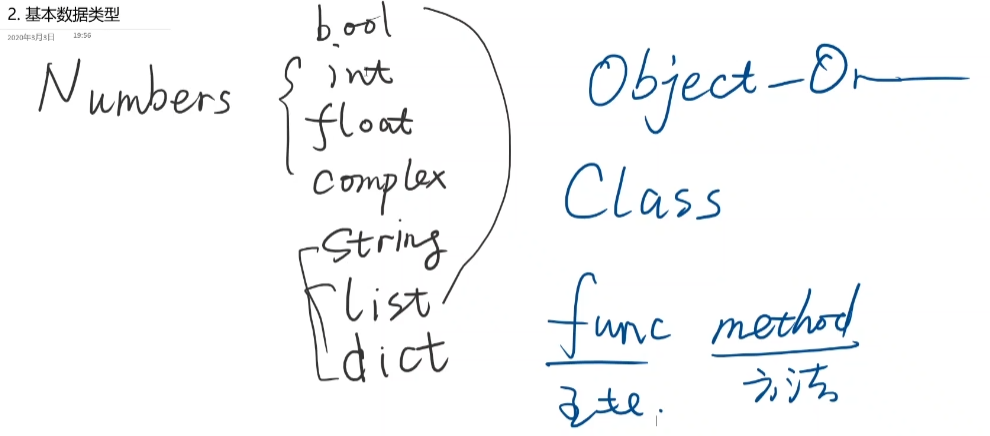 2. 基本数据类型
2020年3月8日 19:56
bool
Numbers
int
float
complex
String
list
dict
Object-Or
Class
func method
方法